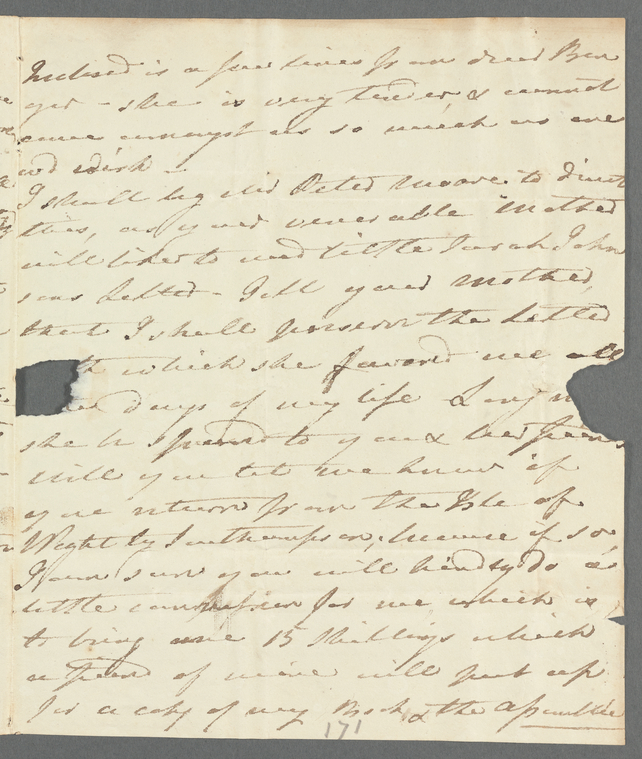 Inclosed is a few lines from dear Ben
ger - she is very tender, & cannot
come amongst us so much as we
wd wish -
I shall beg Mr Peter Moore to direct
this, as your venerable Mother
will like to read little Sarah John
sons Letter - Tell your Mother,
that I shall preserve the Letter
which she favored me all
days of my life & long
she be spared to you & her
Will you let me know if
you return from the Isle of
Wight by Southampton; because if so,
I am sure you will kindly do a
little commission for me, which is
to bring me 15 Shillings which
a friend of mine will put up
for a copy of my Book & the
171